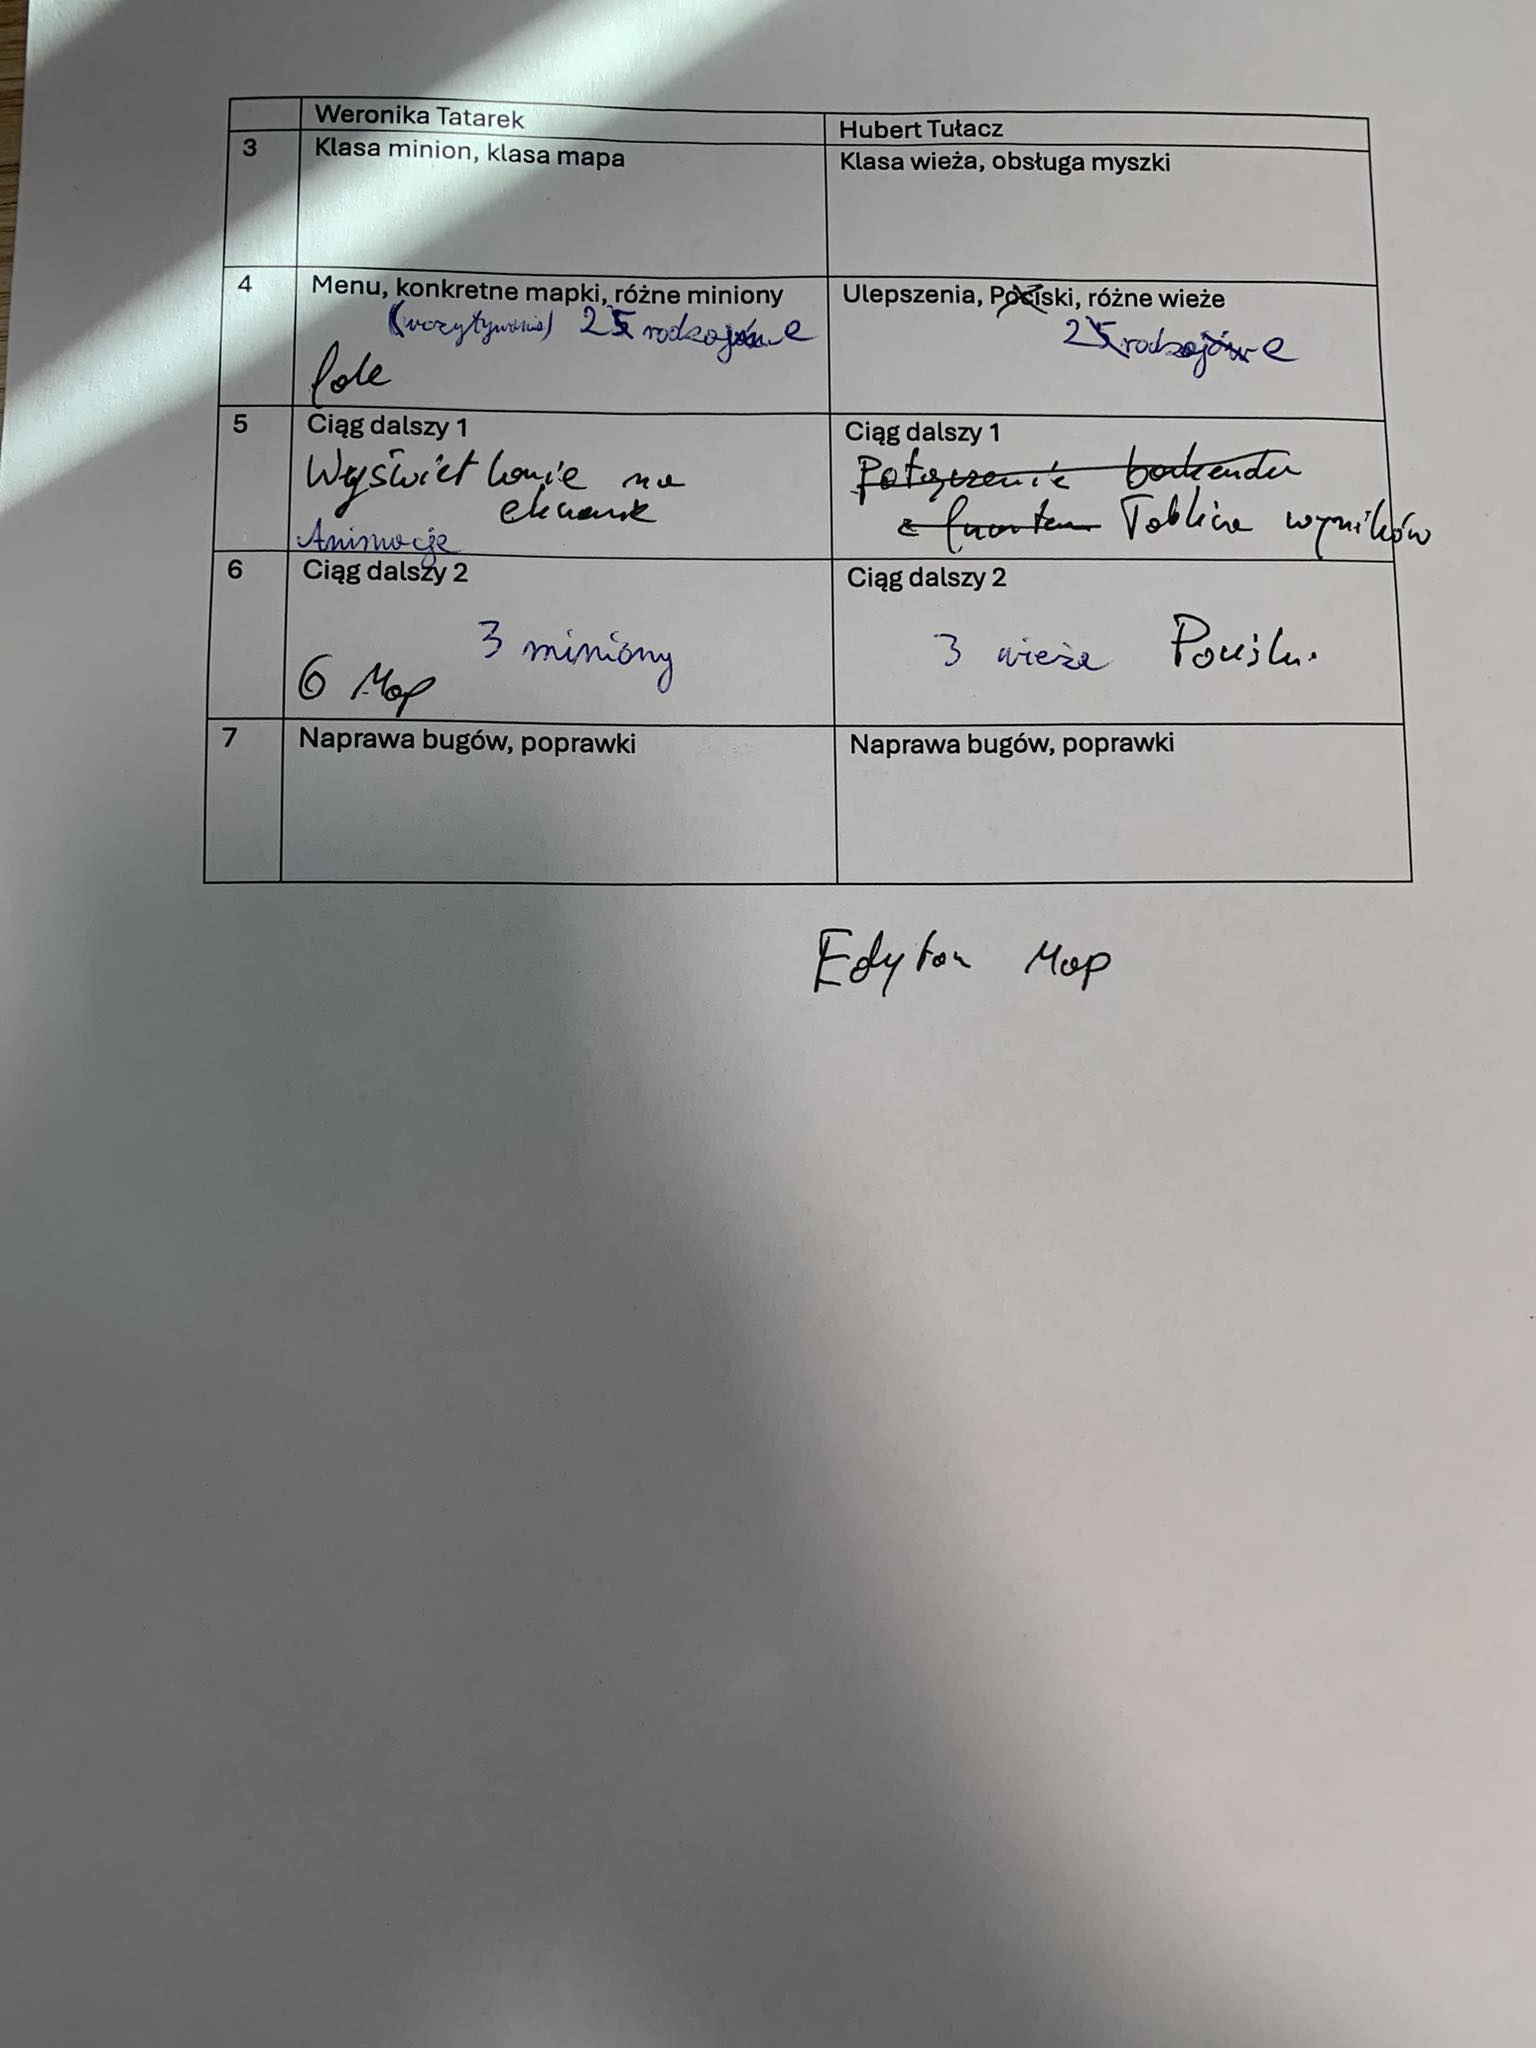 Weronika Tatarek
Hubert Tułacz
3
Klasa minion, klasa mapa
Klasa wieża, obsługa myszki
4
Menu, konkretne mapki, różne miniony
(wczytywanie) 2 rodzaje
Pole
Ulepszenia, Pociski, różne wieże
2 rodzaje
5
Ciąg dalszy 1
Wyświetlanie na
ekranie
Animacje
Ciąg dalszy 1
Połączenie backendu
z frontem Tablica wyników
6
Ciąg dalszy 2
3 miniony
6 Map
Ciąg dalszy 2
3 wieże Pociski
7
Naprawa bugów, poprawki
Naprawa bugów, poprawki
Edytor Map